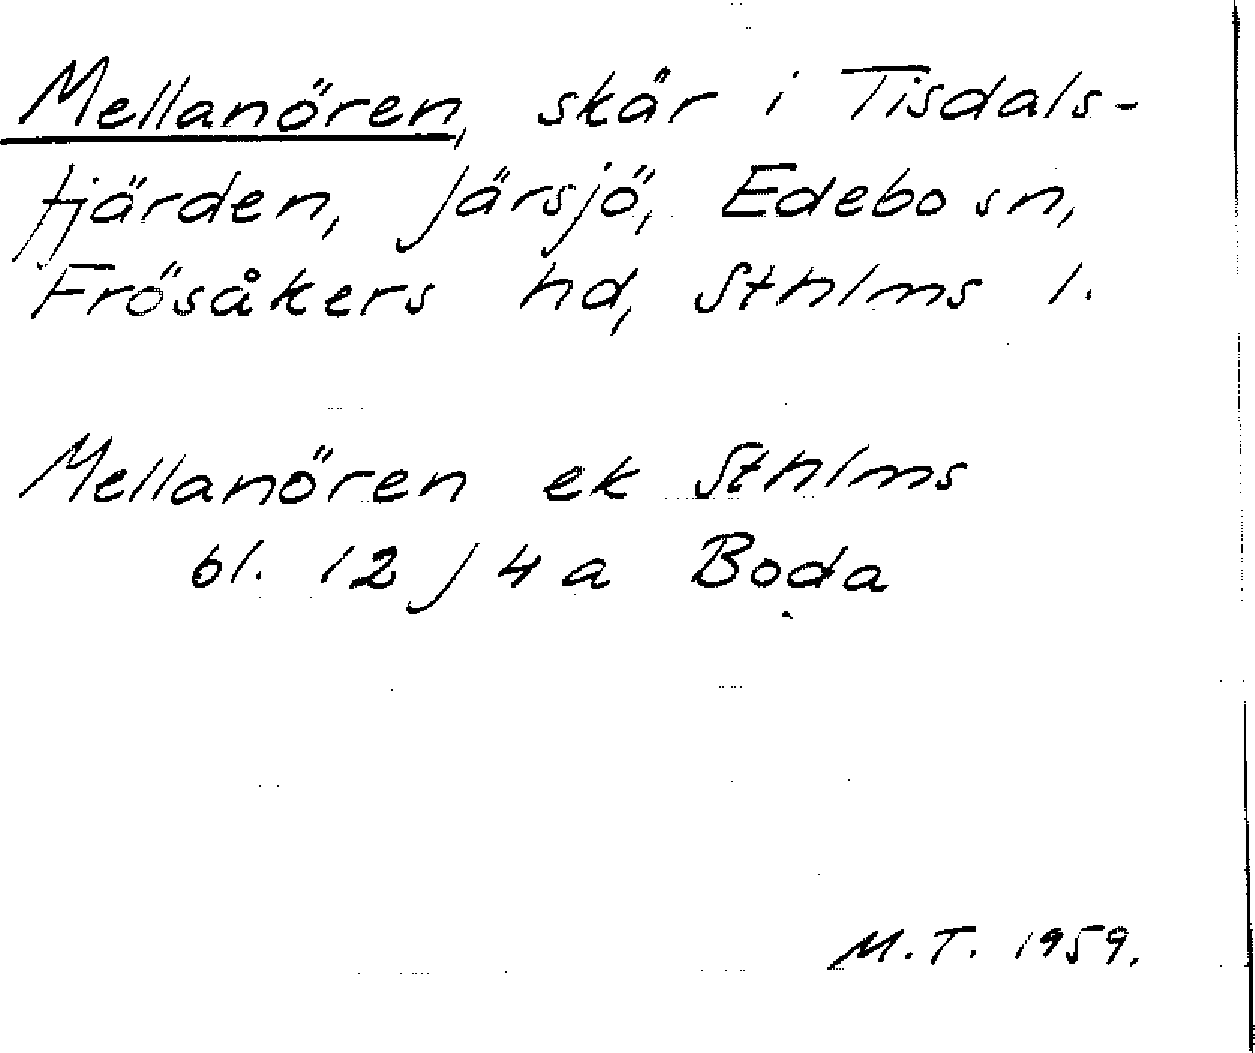 Mellanören, skär i Tisdals-
fjärden, Järsjö, Edebo sn,
Frösåkers hd, Sthlms l.
Mellanören ek Sthlms
bl. 12 J 4 a Boda
M.T. 1959.